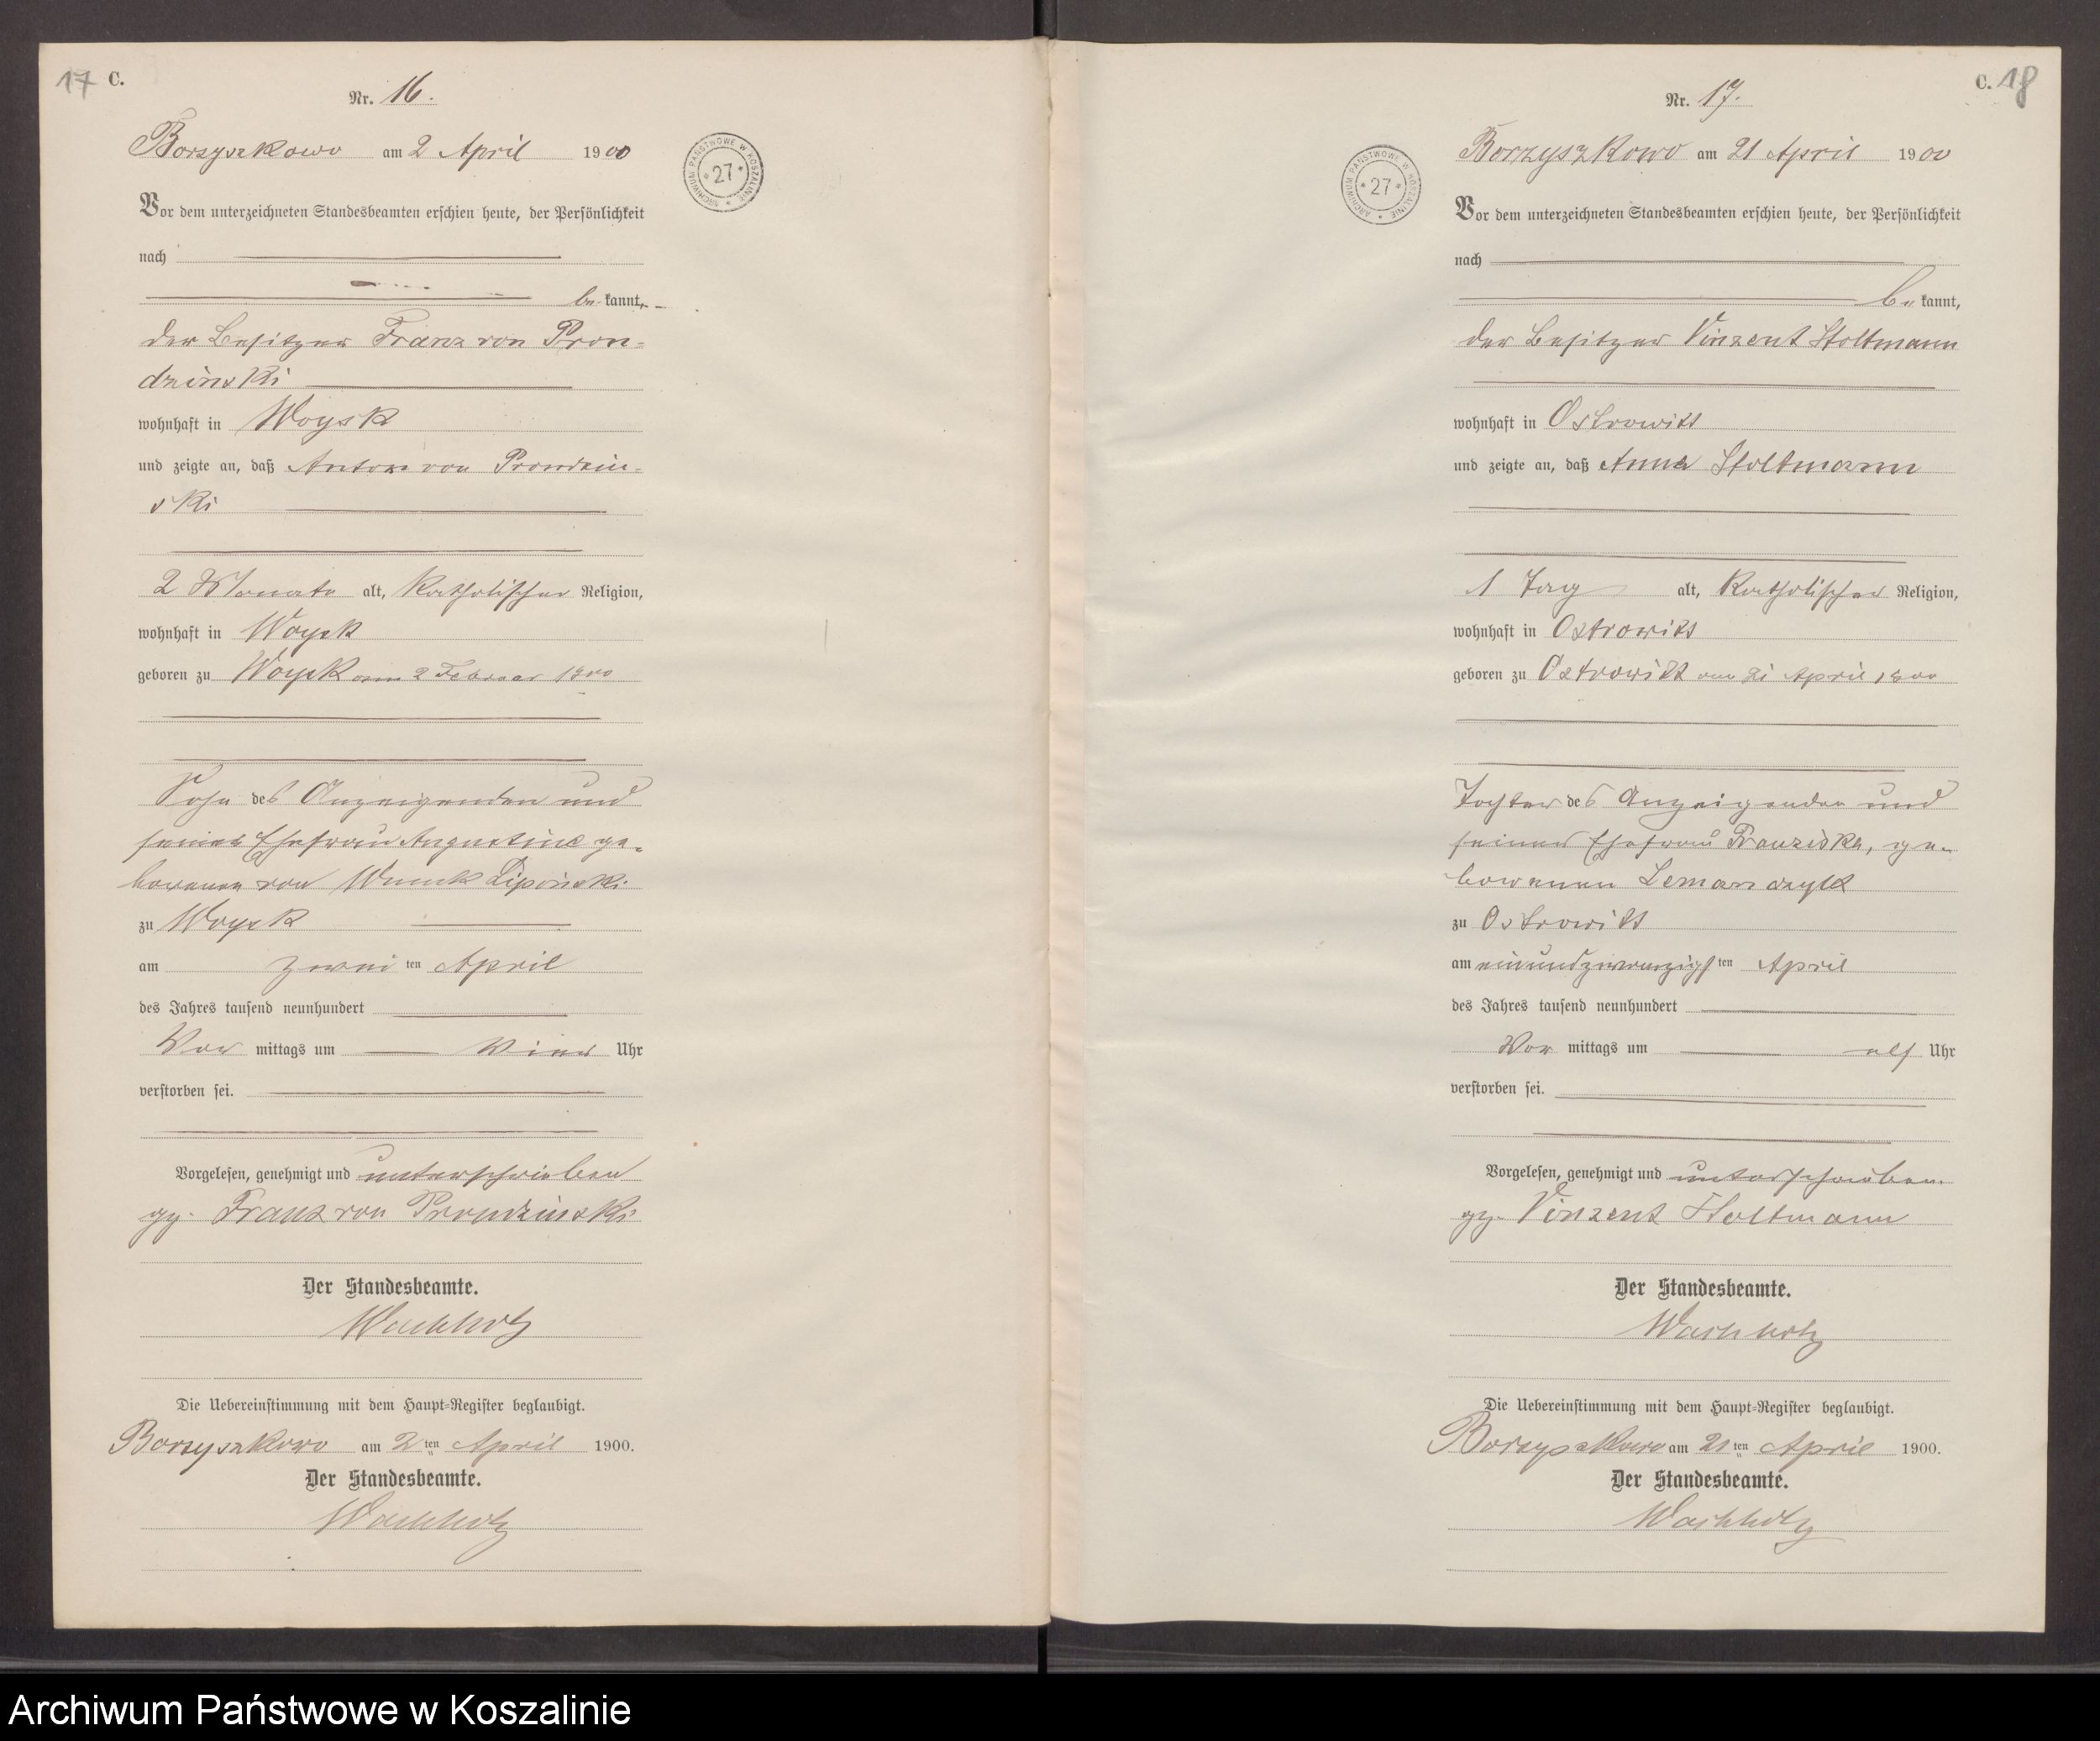 17 C.
Nr. 16.
Borzyszkowo am 2 April 1900
ARCHIWUM PAŃSTWOWE W KOSZALINIE * 27 *
Vor dem unterzeichneten Standesbeamten erschien heute, der Persönlichkeit
nach
be kannt,
der Besitzer Franz von Pron-
dzinski
wohnhaft in Woysk
und zeigte an, daß Anton von Prondzin-
ski
2 Monate alt, katholischer Religion,
wohnhaft in Woysk
geboren zu Woysk am 2 Februar 1900
Sohn des Anzeigenden und
seiner Ehefrau Augustine ge-
borenen von Wnuck Lipinski
zu Woysk
am zwei ten April
des Jahres tausend neunhundert
Vor mittags um vier Uhr
verstorben sei.
Vorgelesen, genehmigt und unterschrieben
gz. Franz von Prondzinski
Der Standesbeamte.
Wachholz
Die Uebereinstimmung mit dem Haupt-Register beglaubigt.
Borzyszkowo am 2ten April 1900.
Der Standesbeamte.
Wachholz
C. 18
Nr. 17.
Borzyszkowo am 21 April 1900
ARCHIWUM PAŃSTWOWE W KOSZALINIE * 27 *
Vor dem unterzeichneten Standesbeamten erschien heute, der Persönlichkeit
nach
be kannt,
der Besitzer Vinzent Stoltmann
wohnhaft in Ostrowitt
und zeigte an, daß Anna Stoltmann
1 Tag alt, katholischer Religion,
wohnhaft in Ostrowitt
geboren zu Ostrowitt am 21 April 1900
Tochter des Anzeigenden und
seiner Ehefrau Franziska, ge-
borenen Lemanczyk
zu Ostrowitt
am einundzwanzigs ten April
des Jahres tausend neunhundert
Vor mittags um elf Uhr
verstorben sei.
Vorgelesen, genehmigt und unterschrieben.
gz. Vinzent Stoltmann
Der Standesbeamte.
Wachholz
Die Uebereinstimmung mit dem Haupt-Register beglaubigt.
Borzyszkowo am 21ten April 1900.
Der Standesbeamte.
Wachholz
Archiwum Państwowe w Koszalinie